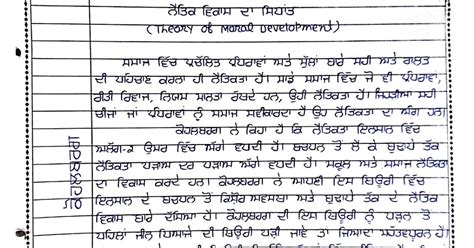 ਨੈਤਿਕ ਵਿਕਾਸ ਦਾ ਸਿਧਾਂਤ
(Theory of Moral Development)
ਸਮਾਜ ਵਿੱਚ ਪ੍ਰਚੱਲਿਤ ਪਰੰਪਰਾਵਾਂ ਅਤੇ ਮੁੱਲਾਂ ਬਾਰੇ ਸਹੀ ਅਤੇ ਗਲਤ
ਦੀ ਪਹਿਚਾਣ ਕਰਨਾ ਹੀ ਨੈਤਿਕਤਾ ਹੈ। ਸਾਡੇ ਸਮਾਜ ਵਿੱਚ ਜੋ ਵੀ ਪਰੰਪਰਾਵਾਂ,
ਰੀਤੀ ਰਿਵਾਜ, ਨਿਯਮ ਮਾਨਤਾ ਰੱਖਦੇ ਹਨ, ਉਹੀ ਨੈਤਿਕਤਾ ਹੈ। ਜਿਹੜੀਆਂ ਸਹੀ
ਚੀਜਾਂ ਜਾਂ ਪਰੰਪਰਾਵਾਂ ਨੂੰ ਸਮਾਜ ਸਵੀਕਾਰਦਾ ਹੈ ਉਹ ਨੈਤਿਕਤਾ ਦਾ ਅੰਗ ਹਨ।
ਕੋਹਲਬਰਗ ਨੇ ਕਿਹਾ ਹੈ ਕਿ ਨੈਤਿਕਤਾ ਇਨਸਾਨ ਵਿੱਚ
ਅਲੱਗ-2 ਉਮਰ ਵਿੱਚ ਅੱਗੇ ਵਧਦੀ ਹੈ। ਬਚਪਨ ਤੋਂ ਲੈ ਕੇ ਬੁਢਾਪੇ ਤੱਕ
ਨੈਤਿਕਤਾ ਪੜਾਅ ਦਰ ਪੜਾਅ ਅੱਗੇ ਵਧਦੀ ਹੈ। ਸਕੂਲ ਅਤੇ ਸਮਾਜ ਨੈਤਿਕਤਾ
ਦਾ ਵਿਕਾਸ ਕਰਦੇ ਹਨ। ਕੋਹਲਬਰਗ ਨੇ ਆਪਣੀ ਇਸ ਥਿਊਰੀ ਵਿੱਚ
ਇਨਸਾਨ ਦੇ ਬਚਪਨ ਤੋਂ ਕਿਸ਼ੋਰ ਅਵਸਥਾ ਅਤੇ ਬੁਢਾਪੇ ਤੱਕ ਦੇ ਨੈਤਿਕ
ਵਿਕਾਸ ਬਾਰੇ ਦੱਸਿਆ ਹੈ। ਕੋਹਲਬਰਗ ਦੀ ਇਸ ਥਿਊਰੀ ਨੂੰ ਪੜ੍ਹਨ ਤੋਂ
ਪਹਿਲਾਂ ਜੀਨ ਪਿਆਜੇ ਦੀ ਥਿਊਰੀ ਪੜੀ ਜਾਵੇ ਤਾਂ ਜਿਆਦਾ ਮਹੱਤਵਪੂਰਨ ਹੈ।
ਕੋਹਲਬਰਗ